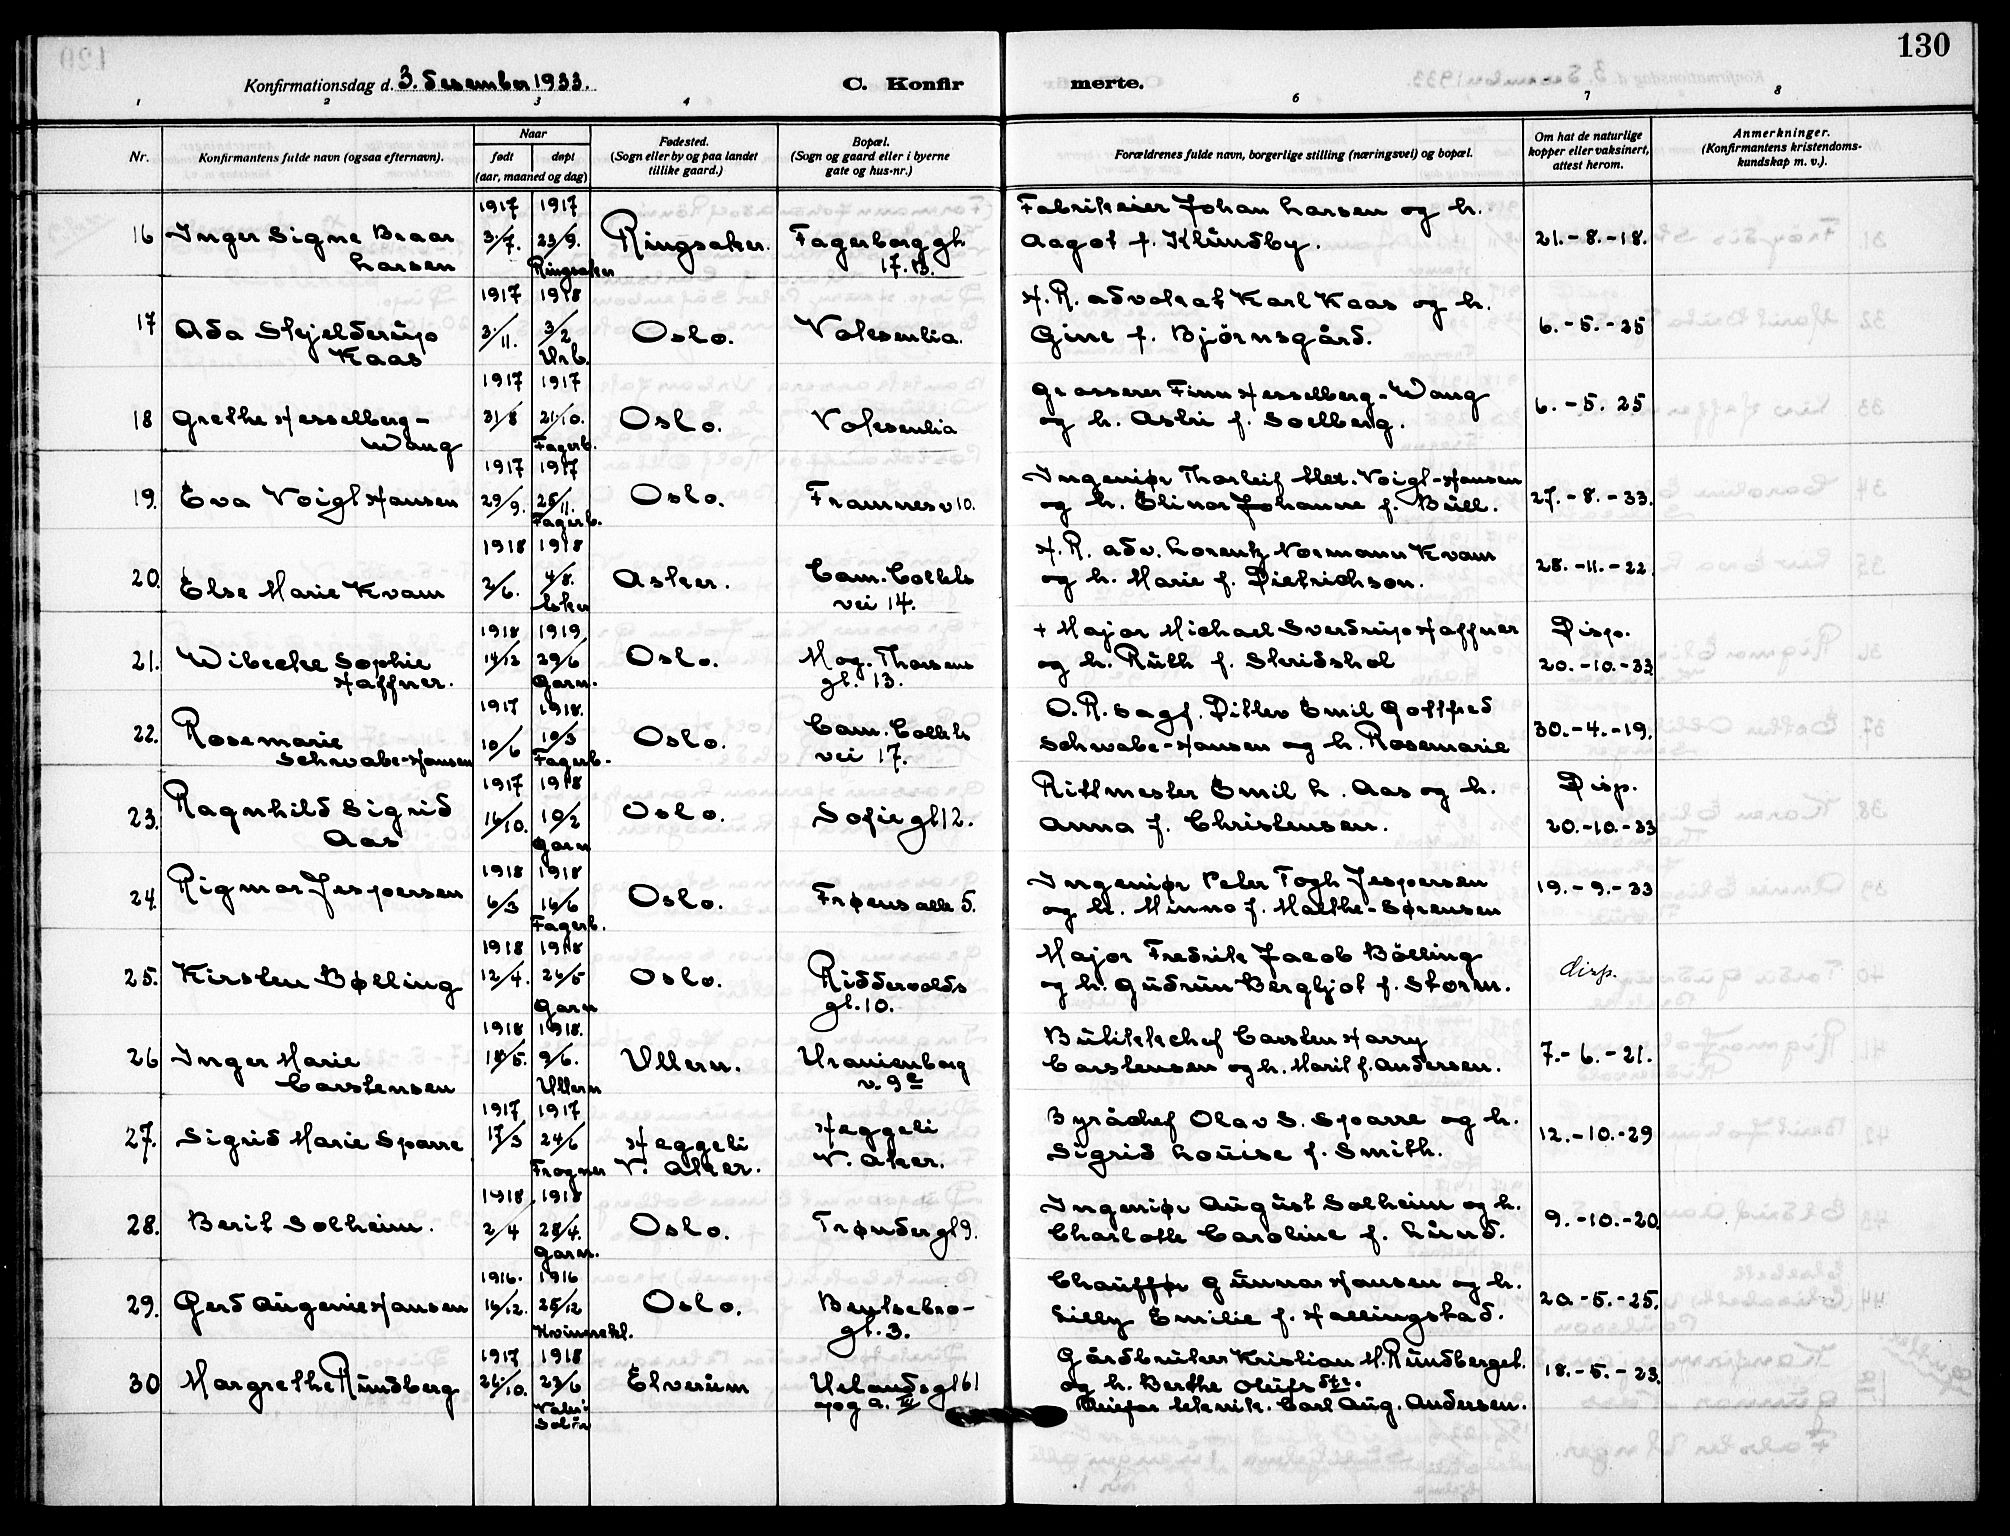 130
Konfirmationsdag d. 3. desember 1933.
C. Konfirmerte.
1 2 3 4 6 7 8
Nr.
Konfirmantens fulde navn (ogsaa efternavn).
Naar
født
døpt
(aar, maaned og dag)
Fødested.
(Sogn eller by og paa landet
tillike gaard.)
Bopæl.
(Sogn og gaard eller i byerne
gate og hus-nr.)
Forældrenes fulde navn, borgerlige stilling (næringsvei) og bopæl.
Om hat de naturlige
kopper eller vaksinert,
attest herom.
Anmerkninger.
(Konfirmantens kristendoms-
kundskap m. v.).
16 Inger Signe Braar
Larsen
1917
3/7.
1917
23/9.
Ringsaker
Ringsaker.
Fagerborg gt.
17.B.
Fabrikeier Johan Larsen og h.
Aagot f. Klundby.
21.-8.-18.
17 Ada Skjelderup
Kaas
1917
3/11.
1918
3/2
Urb.
Oslo.
Volvsenlia.
H.R. advokat Karl Kaas og h.
Gine f. Bjørnsgård.
6.-5.-25
18 Grethe Hesselberg-
Wang
1917
31/8
1917
21/10.
Fagerb.
Oslo.
Grosserer Finn Hesselberg-Wang
og h. Astri f. Soelberg.
6.-5. 25
19. Eva Voigt Hansen
1917
29/9.
1917
25/11.
Fagerb.
Oslo.
Framnesv 10.
Ingeniør Thorleif Alex. Voigt-Hansen
og h. Elinor Johanne f. Bull.
27.-8.-33.
20. Else Marie Kvam
1918
2/6.
1918
4/8.
Asker
Asker.
Cam. Colletts
vei 14.
H.R. adv. Lorentz Normann Kvam
og h. Marie f. Dietrichson.
28.-11.-22
21. Wibecke Sophie
Haffner.
1918
14/12
1919
29/6
Garn.
Oslo.
Mog. Thorsens
gt. 13.
+ Major Michael Sverdrup Haffner
og h. Ruth f. Skridshol
Disp.
20.-10.-33
22. Rosemarie
Schwabe-Hansen
1917
10/6
1918.
10/3
Fagerb.
Oslo.
Cam. Colletts
vei 17.
O.R. sagf. Ditlev Emil Gottfred
Schwabe-Hansen og h. Rosemarie
30.-4.-19.
23. Ragnhild Sigrid
Aas
1917
16/10.
1918
10/2
Garn
Oslo.
Sofie gt 12.
Rittmester Emil L. Aas og h.
Anna f. Christensen.
Disp.
20.-10.-33
24. Rigmor Jespersen
1918
6/3
1918
16/6
Fagerb.
Oslo.
Frøens allé 5.
Ingeniør Peter Fogh Jespersen
og h. Minna f. Malthe-Sørensen
19.-9.-33
25. Kirsten Bølling
1918
12/4.
1918
26/5
Garn
Oslo.
Riddervolds
gt. 10.
Major Fredrik Jacob Bölling
og h. Gudrun Bergljot f. Storm.
disp.
26 Inger Marie
Carstensen
1918
18/5.
1918.
9/6.
Ullern
Ullern.
Uranienborg
v. 9 c
Butikkchef Carsten Harry
Carstensen og h. Marit f. Andersen.
7.-6.-21.
27. Sigrid Marie Sparre
1917
17/3
1917
24/6
Frogner
Heggeli
V. Aker.
Heggeli
V. Aker.
Byråchef Olav S. Sparre og h.
Sigrid Louise f. Smith.
12.-10.-29
28. Berit Solheim.
1918
2/4
1918
28/4.
Garn.
Oslo.
Trønder gt 9.
Ingeniør August Solheim og h.
Charlotte Caroline f. Lund.
9.-10.-20.
29. Gerd Augenie Hansen
1916.
16/12.
1916
25/12
Kvinnekl.
Oslo.
Bentsebro-
gt. 3.
Chauffør Gunnar Hansen og h.
Lilly Emilie f. Hallingstad.
20-5.-25.
30 Margrethe Rundberg
1917
26/10.
1918
23/6
Våler i
Solør
Elverum
Uelands gt 61
opg a. III
Gårdbruker Kristian M. Rundberget.
og h. Berthe Olufsdtr.
Pleiefar teknik. Carl Aug. Andersen.
18.-5.-23.